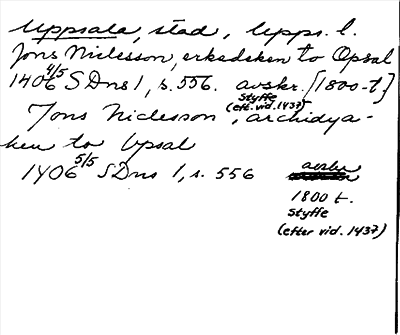 Uppsala, stad, Upps. l.
Jons Niclesson, erkedeken to Opsal
1406 4/5 SDns 1, s. 556. avskr. [1800-t]
Styffe
(eft. vid. 1437)
Jons Niclesson, archidya-
ken to Upsal
1406 5/5 SDns 1, s. 556 avskr
1800 t.
Styffe
(efter vid. 1437)